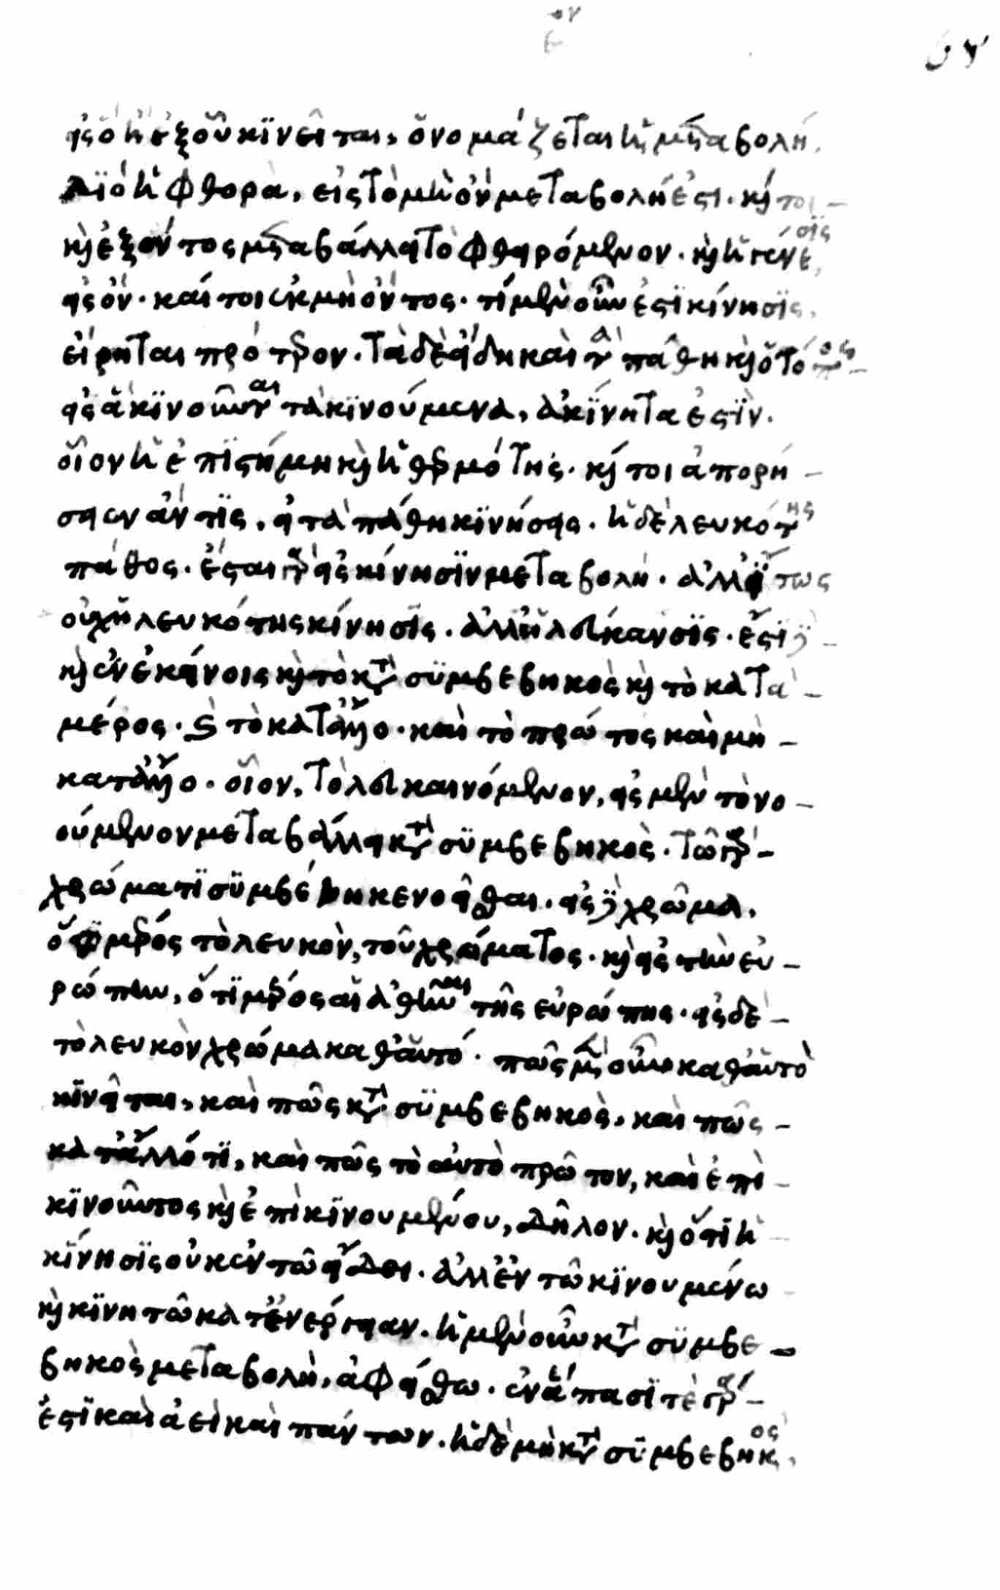 εἰς ὃ ἢ ἐξ οὗ κινεῖται, ὀνομάζεται ἡ μεταβολή.
διὸ ἡ φθορὰ, εἰς τὸ μὴ ὂν μεταβολή ἐστι. καίτοι
καὶ ἐξ ὄντος μεταβάλλει τὸ φθειρόμενον. καὶ ἡ γένεσις
εἰς ὄν. καίτοι ἐκ μὴ ὄντος. τί μὲν οὖν ἐστι κίνησις,
εἴρηται πρότερον. τὰ δὲ εἴδη καὶ τὰ πάθη καὶ ὁ τόπος
εἰς ἃ κινοῦνται τὰ κινούμενα, ἀκίνητά ἐστιν.
οἷον ἡ ἐπιστήμη καὶ ἡ θερμότης. καίτοι ἀπορή
σειεν ἄν τις, εἰ τὰ πάθη κινήσεις. ἡ δὲ λευκότης
πάθος. ἔσται γὰρ εἰς κίνησιν μεταβολή. ἀλλ' ἴσως
οὐχ ἡ λευκότης κίνησις. ἀλλ' ἡ λεύκανσις. ἔστι δὲ
καὶ ἐν ἐκείνοις καὶ τὸ κατὰ συμβεβηκὸς καὶ τὸ κατὰ
μέρος. καὶ τὸ κατ' ἄλλο. καὶ τὸ πρώτως καὶ μὴ
κατ' ἄλλο. οἷον, τὸ λευκαινόμενον, εἰς μὲν τὸ νο
ούμενον μεταβάλλει κατὰ συμβεβηκὸς. τῷ γὰρ
χρώματι συμβέβηκε νοεῖσθαι. εἰς δὲ χρῶμα,
ὅτι μέρος τὸ λευκὸν, τοῦ χρώματος. καὶ εἰς τὴν εὐ
ρώπην, ὅτι μέρος αἱ ἀθῆναι τῆς εὐρώπης. εἰς δὲ
τὸ λευκὸν χρῶμα καθ' αὑτό. πῶς μὲν οὖν καθ' αὑτὸ
κινεῖται, καὶ πῶς κατὰ συμβεβηκὸς, καὶ πῶς
κατ' ἄλλό τι, καὶ πῶς τὸ αὐτὸ πρῶτον, καὶ ἐπὶ
κινοῦντος καὶ ἐπὶ κινουμένου, δῆλον. καὶ ὅτι ἡ
κίνησις οὐκ ἐν τῷ εἴδει. ἀλλ' ἐν τῷ κινουμένω
καὶ κινητῷ κατ' ἐνέργειαν. ἡ μὲν οὖν κατὰ συμβε
βηκὸς μεταβολὴ, ἀφείσθω. ἐν ἅπασί τε γάρ
ἐστι καὶ ἀεὶ καὶ πάντων. ἡ δὲ μὴ κατὰ συμβεβηκὸς